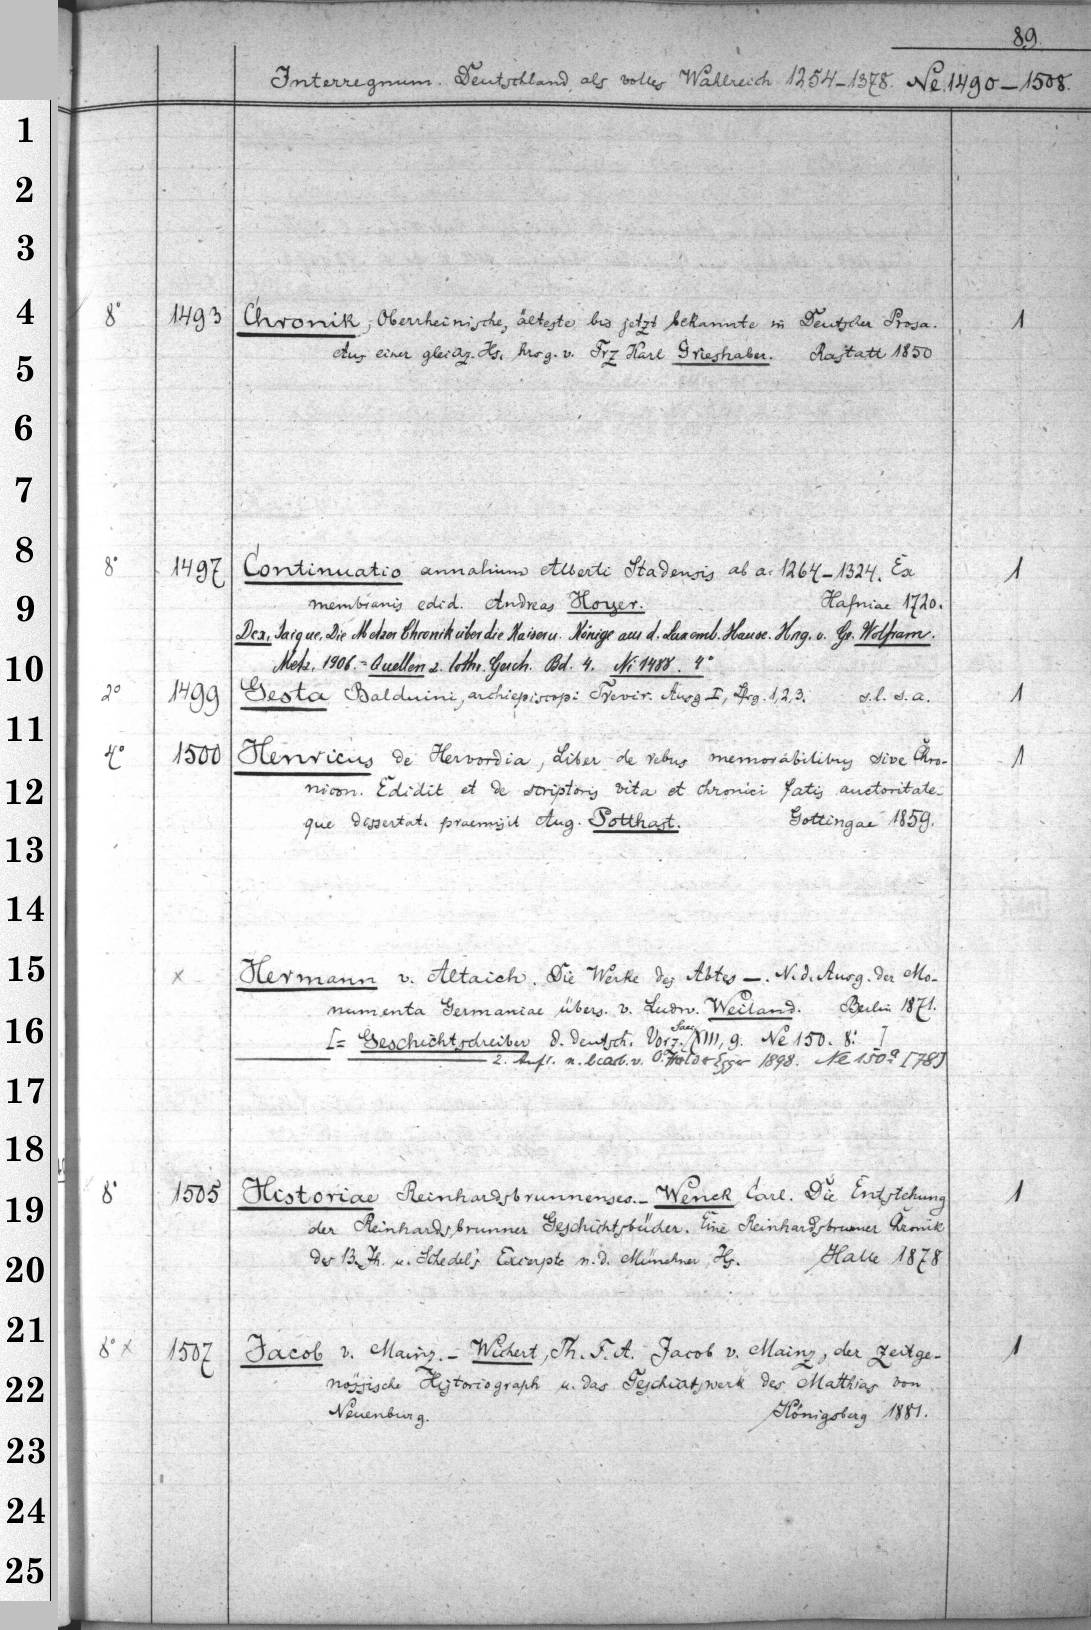 89.
Interregnum. Deutschland als volles Wahlreich 1254–1378. Ne 1490–1508.
1
2
3
4
8° 1493 Chronik, Oberrheinische, älteste bis jetzt bekannte in Deutscher Prosa. 1
Aus einer gleichz. Hs. hrsg. v. Frz Karl Grieshaber. Rastatt 1850
5
6
7
8
8° 1497 Continuatio annalium Alberti Stadensis ab a. 1264–1324. Ex 1
membranis edid. Andreas Hoyer. Hafniae 1720.
9
Dex, Jaique, Die Metzer Chronik über die Kaiser u. Könige aus d. Luxemb. Hause. Hrsg. v. Ge. Wolfram.
10
Metz. 1906. = Quellen z. lothr. Gesch. Bd. 4. Ni 1488. 4°
2° 1499 Gesta Balduini, archiepiscopi Trevir. Ausg I, Lfrg. 1,2,3. s.l. s.a. 1
11
4° 1500 Henricus de Hervordia, Liber de rebus memorabilibus sive Chro- 1
12
nicon. Edidit et de scriptoris vita et chronici fatis auctoritate-
que dissertat. praemisit Aug. Potthast. Gottingae 1859.
13
14
15
x Hermann v. Altaich. Die Werke des Abtes —. N. d. Ausg. der Mo-
numenta Germaniae übers. v. Ludw. Weiland. Berlin 1871.
16
[= Geschichtschreiber d. deutsch. Vorz. Saec XIII, 9. Ne 150. 8°. ]
2. Aufl. n. bearb. v. O. Holder Egger 1898. Ne 150a [78]
17
18
19
8° 1505 Historiae Reinhardsbrunnenses. – Wenck, Carl. Die Entstehung 1
der Reinhardsbrunner Geschichtsbücher. Eine Reinhardsbrunner Chronik
des 13. Jh. u. Schedel's Excerpte n. d. Münchner Hs. Halle 1878
20
21
8° x 1507 Jacob v. Mainz. – Wichert, Th. F. A. Jacob v. Mainz, der zeitge- 1
22
nössische Historiograph u. das Geschichtswerk des Matthias von
Neuenburg. Königsberg 1881.
23
24
25